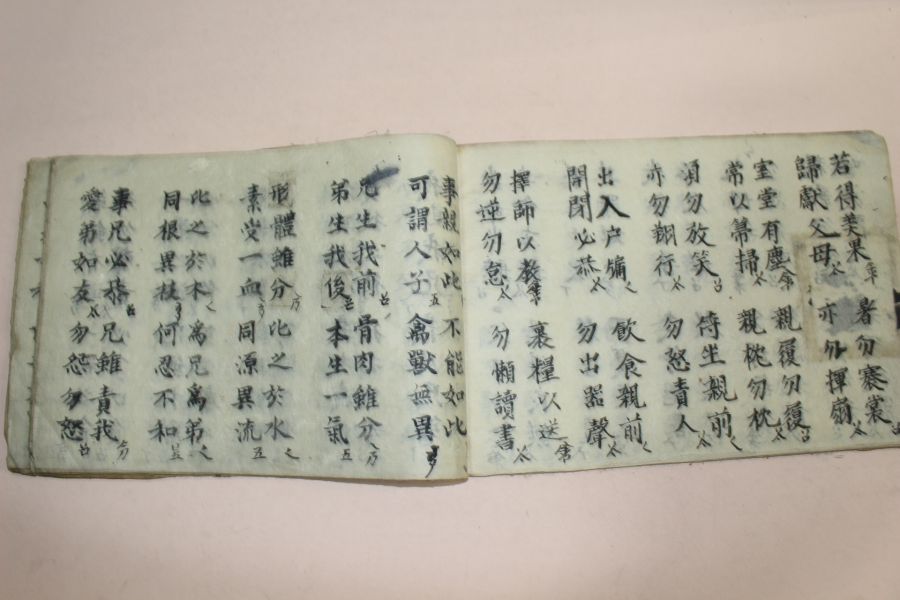 若得美果 者勿褰裳
歸獻父母 亦勿揮扇
室堂有塵 親履勿履
常以箒掃 親枕勿枕
須勿放笑 侍坐親前
亦勿翔行 勿怒責人
出入户牖 飲食親前
開閉必恭 勿出器聲
擇師以教 裹糧以送
勿逆勿怠 勿懶讀書
事親如此 不能如此
可謂人子 禽獸無異
兄生我前 骨肉雖分
弟生我後 本生一氣
形體雖分 比之於水
素受一血 同源異流
比之於木 為兄為弟
同根異枝 何忍不和
事兄必恭 兄雖責我
愛弟如友 勿怨勿怒